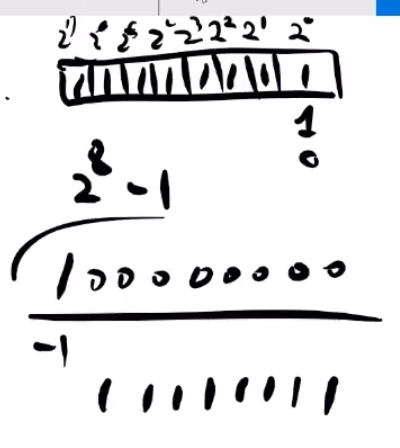 2⁷ 2⁶ 2⁵ 2⁴ 2³ 2² 2¹ 2⁰
1 1 1 1 1 1 1 1
1
0
2⁸ - 1
1 0 0 0 0 0 0 0 0
-1
1 1 1 1 1 1 1 1